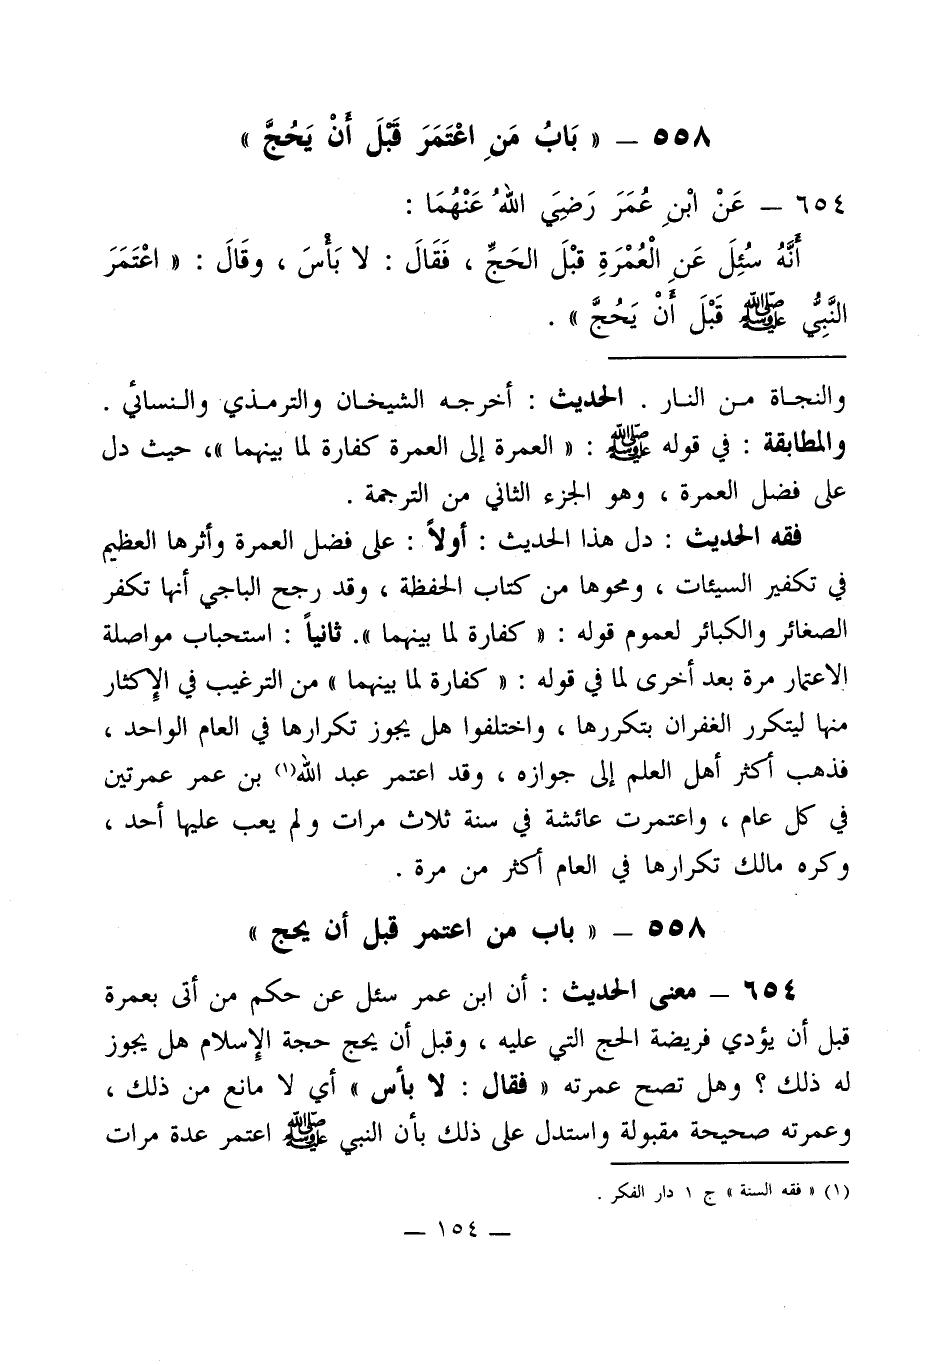 ٥٥٨ – « بَابُ مَنِ اعْتَمَرَ قَبْلَ أَنْ يَحُجَّ »
٦٥٤ – عَنْ ابْنِ عُمَرَ رَضِيَ اللهُ عَنْهُمَا :
أَنَّهُ سُئِلَ عَنِ الْعُمْرَةِ قَبْلَ الحَجِّ ، فَقَالَ : لا بَأْسَ ، وقَالَ : « اعْتَمَرَ
النَّبِيُّ ﷺ قَبْلَ أَنْ يَحُجَّ » .
والنجاة من النار . الحديث : أخرجه الشيخان والترمذي والنسائي .
والمطابقة : في قوله ﷺ : « العمرة إلى العمرة كفارة لما بينهما »، حيث دل
على فضل العمرة ، وهو الجزء الثاني من الترجمة .
فقه الحديث : دل هذا الحديث : أولاً : على فضل العمرة وأثرها العظيم
في تكفير السيئات ، ومحوها من كتاب الحفظة ، وقد رجح الباجي أنها تكفر
الصغائر والكبائر لعموم قوله : « كفارة لما بينهما ». ثانياً : استحباب مواصلة
الاعتمار مرة بعد أخرى لما في قوله : « كفارة لما بينهما » من الترغيب في الإكثار
منها ليتكرر الغفران بتكررها ، واختلفوا هل يجوز تكرارها في العام الواحد ،
فذهب أكثر أهل العلم إلى جوازه ، وقد اعتمر عبد الله(١) بن عمر عمرتين
في كل عام ، واعتمرت عائشة في سنة ثلاث مرات ولم يعب عليها أحد ،
وكره مالك تكرارها في العام أكثر من مرة .
٥٥٨ – « باب من اعتمر قبل أن يحج »
٦٥٤ – معنى الحديث : أن ابن عمر سئل عن حكم من أتى بعمرة
قبل أن يؤدي فريضة الحج التي عليه ، وقبل أن يحج حجة الإسلام هل يجوز
له ذلك ؟ وهل تصح عمرته « فقال : لا بأس » أي لا مانع من ذلك ،
وعمرته صحيحة مقبولة واستدل على ذلك بأن النبي ﷺ اعتمر عدة مرات
(١) « فقه السنة » ج ١ دار الفكر .
– ١٥٤ –